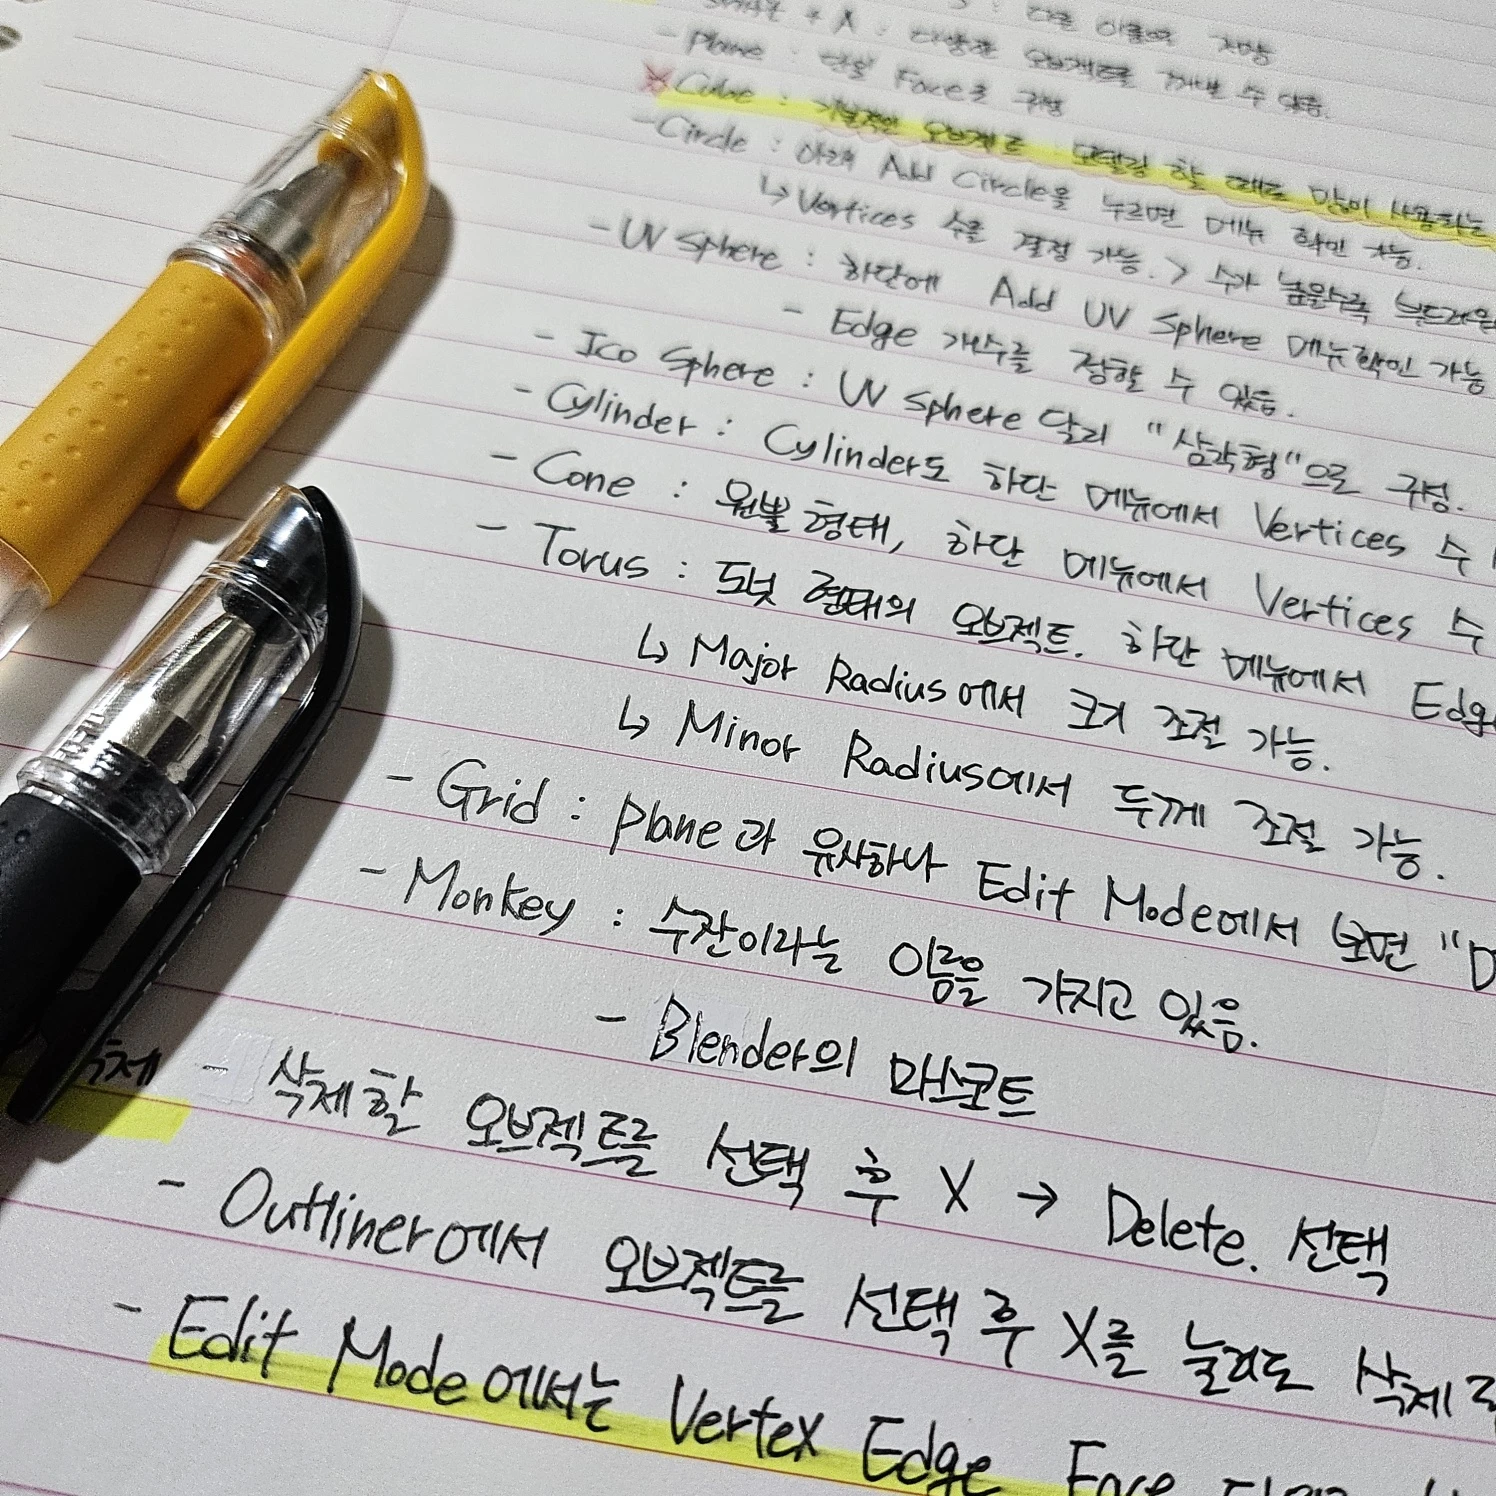 + A : 다양한 오브젝트를 꺼내올 수 있음.
- Plane : 단일 Face로 구성
Cube : 기본적인 오브젝트 모델링 할 때도 많이 사용되는
- Circle : 아래 Add Circle을 누르면 메뉴 확인 가능.
↳ Vertices 수를 결정 가능. > 수가 높을수록 부드러운
- UV Sphere : 하단에 Add UV Sphere 메뉴 확인 가능
- Edge 개수를 정할 수 있음.
- Ico Sphere : UV Sphere 달리 "삼각형"으로 구성.
- Cylinder : Cylinder도 하단 메뉴에서 Vertices 수
- Cone : 원뿔 형태, 하단 메뉴에서 Vertices 수
- Torus : 도넛 형태의 오브젝트. 하단 메뉴에서 Edge
↳ Major Radius에서 크기 조절 가능.
↳ Minor Radius에서 두께 조절 가능.
- Grid : Plane과 유사하나 Edit Mode에서 보면 "D
- Monkey : 수잔이라는 이름을 가지고 있음.
- Blender의 마스코트
삭제 - 삭제할 오브젝트를 선택 후 X → Delete. 선택
- Outliner에서 오브젝트를 선택 후 X를 눌러도 삭제
- Edit Mode에서는 Vertex Edge Face